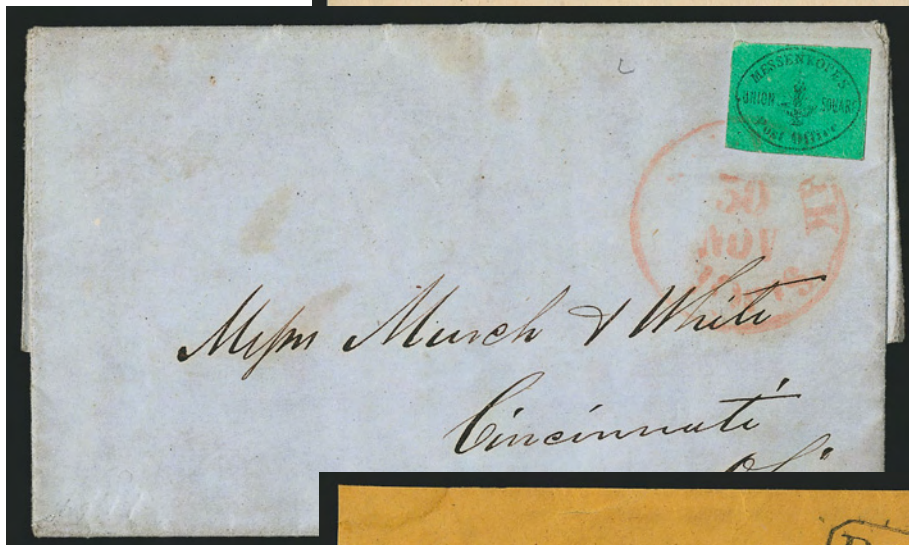 MESSENKOPES
UNION SQUARE
Post Office
30
NOV
Messrs Murch & White
Cincinnati